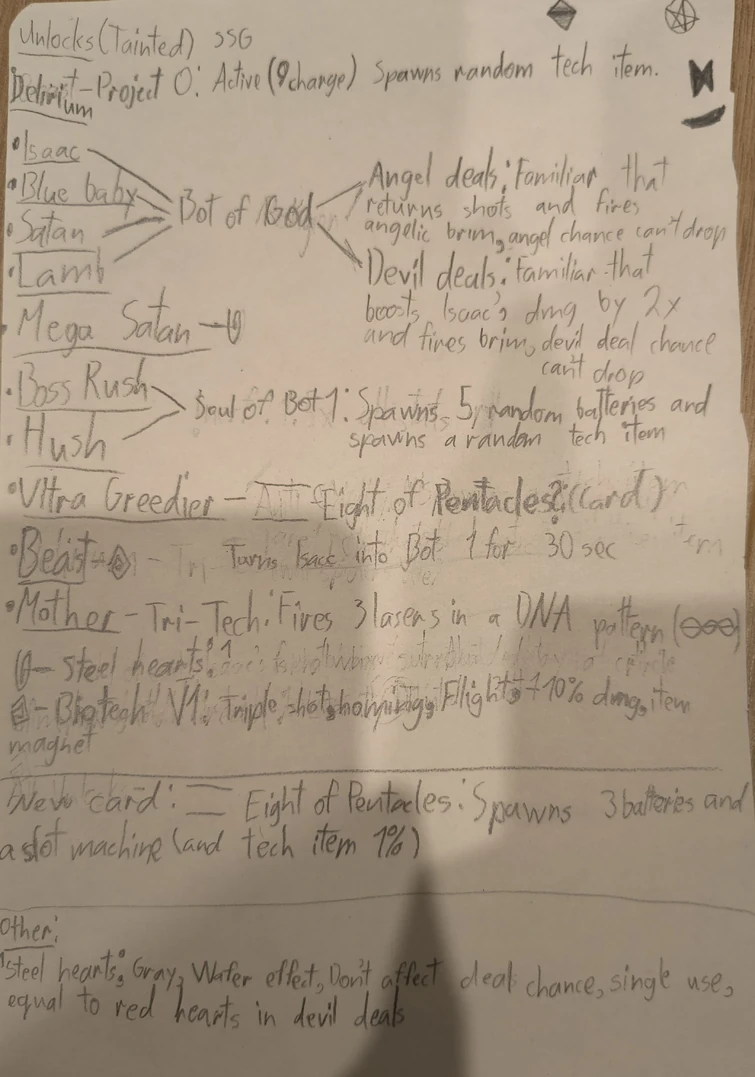 Unlocks (Tainted) SSG
Delirium - Project O: Active (9 charge) Spawns random tech item.
•Isaac
•Blue baby
•Satan
•Lamb
Bot of God
Angel deals: Familiar that
returns shots and fires
angelic brim, angel chance can't drop
Devil deals: Familiar that
boosts Isaac's dmg by 2x
and fires brim, devil deal chance
can't drop
•Mega Satan -
•Boss Rush
•Hush
Soul of Bot 1: Spawns 5 random batteries and
spawns a random tech item
•Ultra Greedier - Eight of Pentacles?: (Card)
•Beast - Turns Isacc into Bot 1 for 30 sec
•Mother - Tri-Tech: Fires 3 lasers in a DNA pattern ( )
- Steel hearts: 1
- Biotech V1: Triple shot, homing, Flight, +10% dmg, item
magnet
New card: Eight of Pentacles: Spawns 3 batteries and
a slot machine (and tech item 1%)
Other:
Steel hearts: Gray, Wafer effect, Don't affect deal chance, single use,
equal to red hearts in devil deals